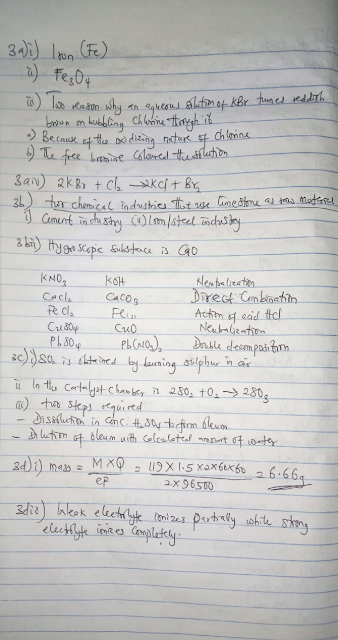 3a)i) Iron (Fe)
ii) Fe3O4
iii) Two reason why an aqueous solution of KBr turned reddish
brown on bubbling Chlorine through it
a) Because of the oxidizing nature of chlorine
b) The free bromine coloured the solution
3aiv) 2KBr + Cl2 → 2KCl + Br2
3b) two chemical industries that use limestone as raw material
i) Cement industry (ii) Iron/steel industry
3bii) Hygroscopic substance is CaO
KNO3 KOH Neutralization
CaCl2 CaCO3 Direct Combination
FeCl2 Fe(s) Action of acid HCl
CuSO4 CuO Neutralization
PbSO4 Pb(NO3)2 Double decomposition
3C)i) SO2 is obtained by burning sulphur in air
ii In the Catalyst Chamber is 2SO2 + O2 → 2SO3
iii) two steps required
- Dissolution in conc. H2SO4 to form oleum
- Dilution of oleum with calculated amount of water
3d)i) mass = MXQ / eF = 119 X 1.5 X 2X60X60 / 2 X 96500 = 6.66g
3dii) Weak electrolyte ionizes partially while strong
electrolyte ionizes completely.